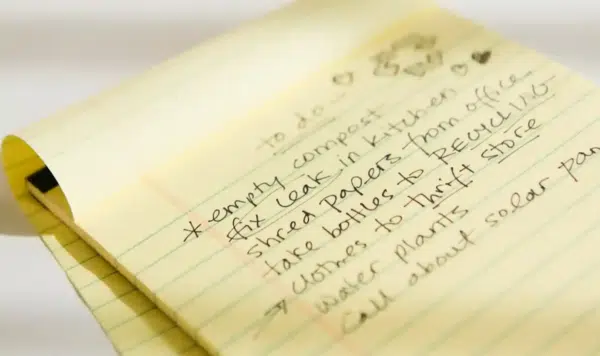 to do -
* empty compost
fix leak in kitchen
shred papers from office
take bottles to RECYCLING
→ clothes to thrift store
water plants
call about solar pan